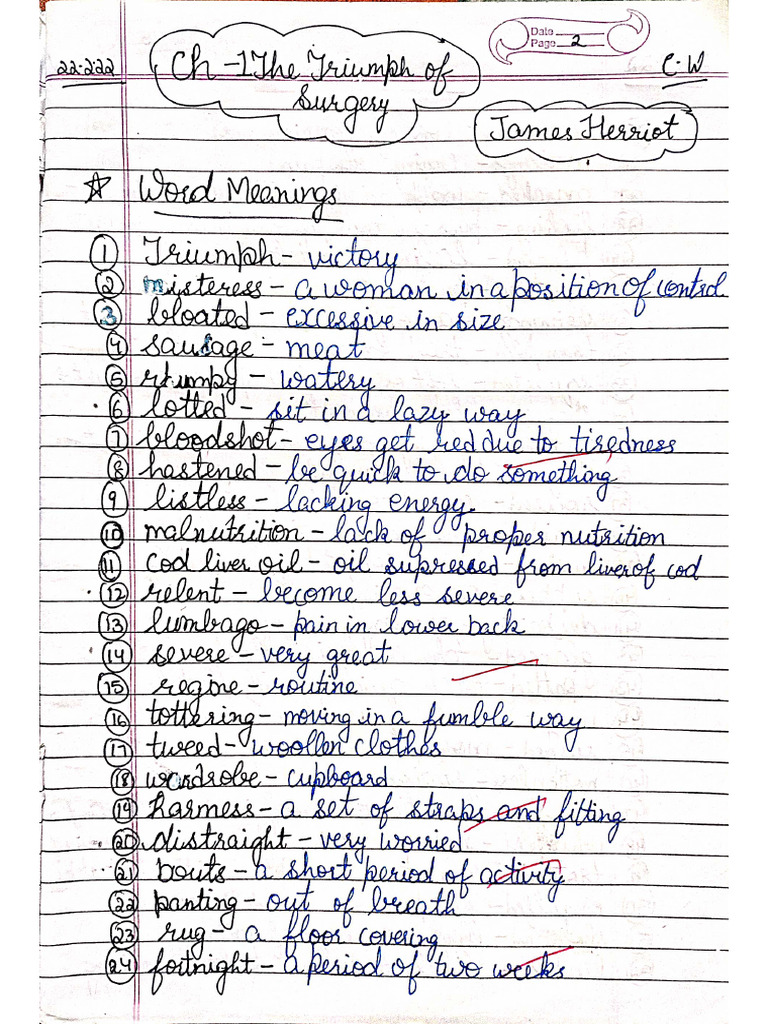 Date
Page 2
22-2-22
Ch-1 The Triumph of
Surgery
C.W
James Herriot
☆ Word Meanings
1 Triumph - victory
2 misteress - a woman in a position of control
3 bloated - excessive in size
4 sausage - meat
5 rhumpy - watery
6 lotted - sit in a lazy way
7 bloodshot - eyes get red due to tiredness
8 hastened - be quick to do something
9 listless - lacking energy.
10 malnutrition - lack of proper nutrition
11 cod liver oil - oil supressed from liver of cod
12 relent - become less severe
13 lumbago - pain in lower back
14 severe - very great
15 regine - routine
16 tottering - moving in a fumble way
17 tweed - woollen clothes
18 wardrobe - cupboard
19 harness - a set of straps and fitting
20 distraight - very worried
21 bouts - a short period of activity
22 panting - out of breath
23 rug - a floor covering
24 fortnight - a period of two weeks